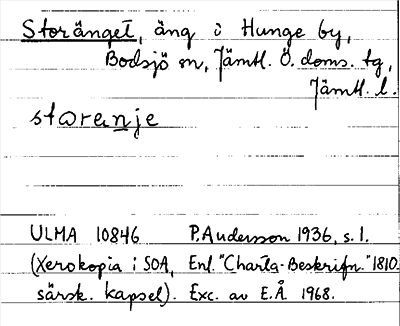 Storänget, äng i Hunge by,
Bodsjö sn, Jämtl. Ö. doms. tg,
Jämtl. l.
storenje
ULMA 10846 P. Andersson 1936, s. 1.
(Xerokopia i SOA, Enl. "Charta-Beskrifn." 1810.
särsk. kapsel). Exc. av E.Å 1968.